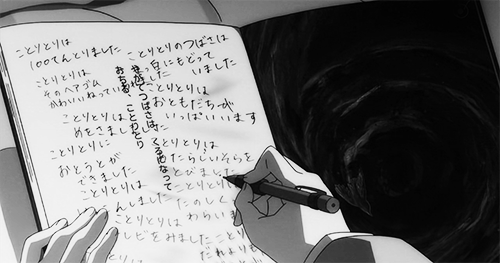 ことりとりは
100てんとりました
ことりとりは
そのヘアゴム
かわいいねってい
ことりとりは
めをさましました
ことりとりに
おとうとが
できました
ことりとりは
んしました
ことりとりは
レビをみました
やがてつばさは、くろくなって
おちる、ことりとり
ことりとりのつばさは
っ白にもどって
いました
ことりとりは
おともだちが
いっぱいいます
とりとりは
たらしいそらを
とびました
ことりとり
たのしく
わらいま
ことり
だれよりも